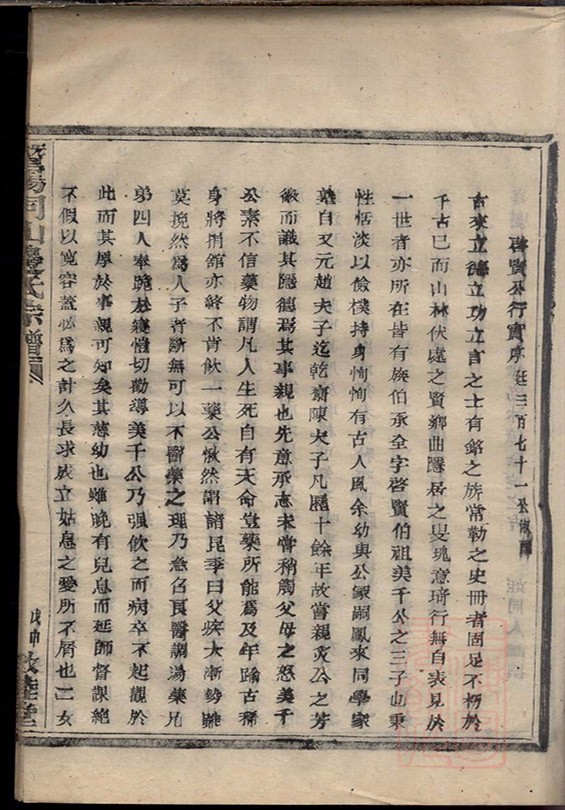 啓賢公行實庠廷三百七十一公傚
古來立德立功立言之士有銘之旂常勒之史冊者固足不朽於
千古已而山林伏處之賢鄉曲隱居之叟瑰意琦行無自表見於
一世者亦所在皆有族伯承全字啓賢伯祖美千公之三子也秉
性恬淡以儉樸持身恂恂有古人風余幼與公家嗣鳳來同學家
塾自又元趙夫子迄乾齋陳夫子凡歷十餘年故嘗親炙公之芳
徽而識其隱德焉其事親也先意承志未嘗稍觸父母之怒美千
公素不信藥物謂凡人生死自有天命豈藥所能為及年踰古稀
身將捐館亦終不肯飲一藥公愀然謂諸昆季曰父疾大漸勢雖
莫挽然為人子者斷無可以不醫藥之理乃急召良醫調湯藥兄
弟四人奉跪於寢愷切勸導美千公乃强飲之而病卒不起觀於
此而其厚於事親可知矣其慈幼也雖晚有兒息而延師督課絕
不假以寬容蓋必為之計久長求成立姑息之愛所不屑也二女
暨陽同山邊氏宗譜
戊申 敦睦堂